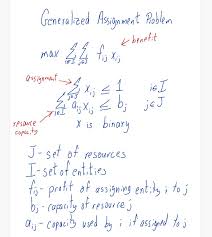 Generalized Assignment Problem
benefit
max ∑i∈I ∑j∈J fij xij
assignment
∑j∈J xij ≤ 1 i∈I
∑i∈I aij xij ≤ bj j∈J
resource capacity
x is binary
J - set of resources
I - set of entities
fij - profit of assigning entity i to j
bj - capacity of resource j
aij - capacity used by i if assigned to j